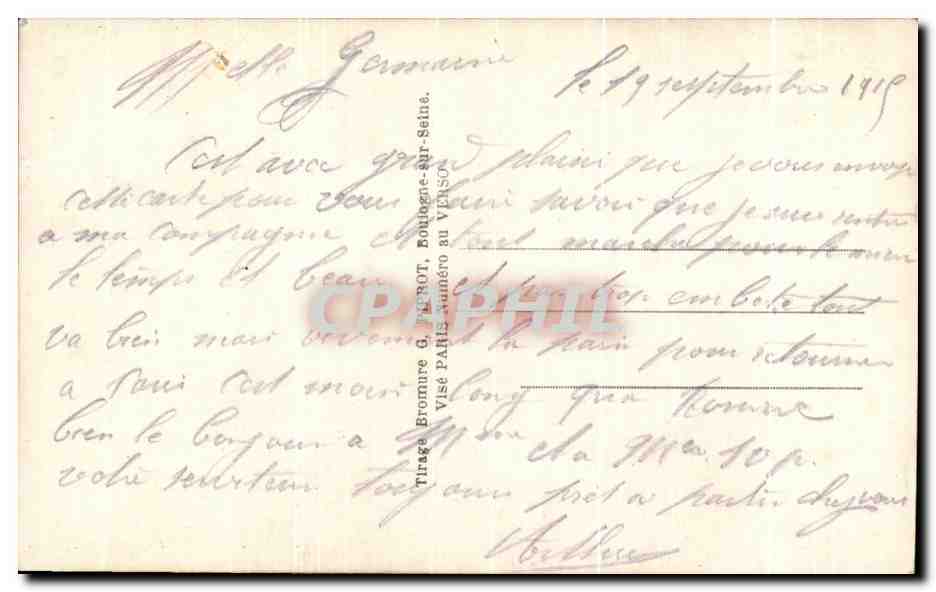 Melle Germaine
le 19 septembre 1915
C'est avec grand plaisir que je vous envoye
cette carte pour vous faire savoir que je suis rentré
a ma compagnie et tout marche pour le mieux
le temps et beau et pas trop embeté tout
va bien mais vivement la paix pour retourner
a Paris c'est mais long que
bien le bonjour a Mme et a
votre serviteur toujours pret a partir chez vous
Arthur
Tirage Bromure G. PIPROT, Boulogne-sur-Seine.
Visé PARIS Numéro au VERSO
CPAPHIL